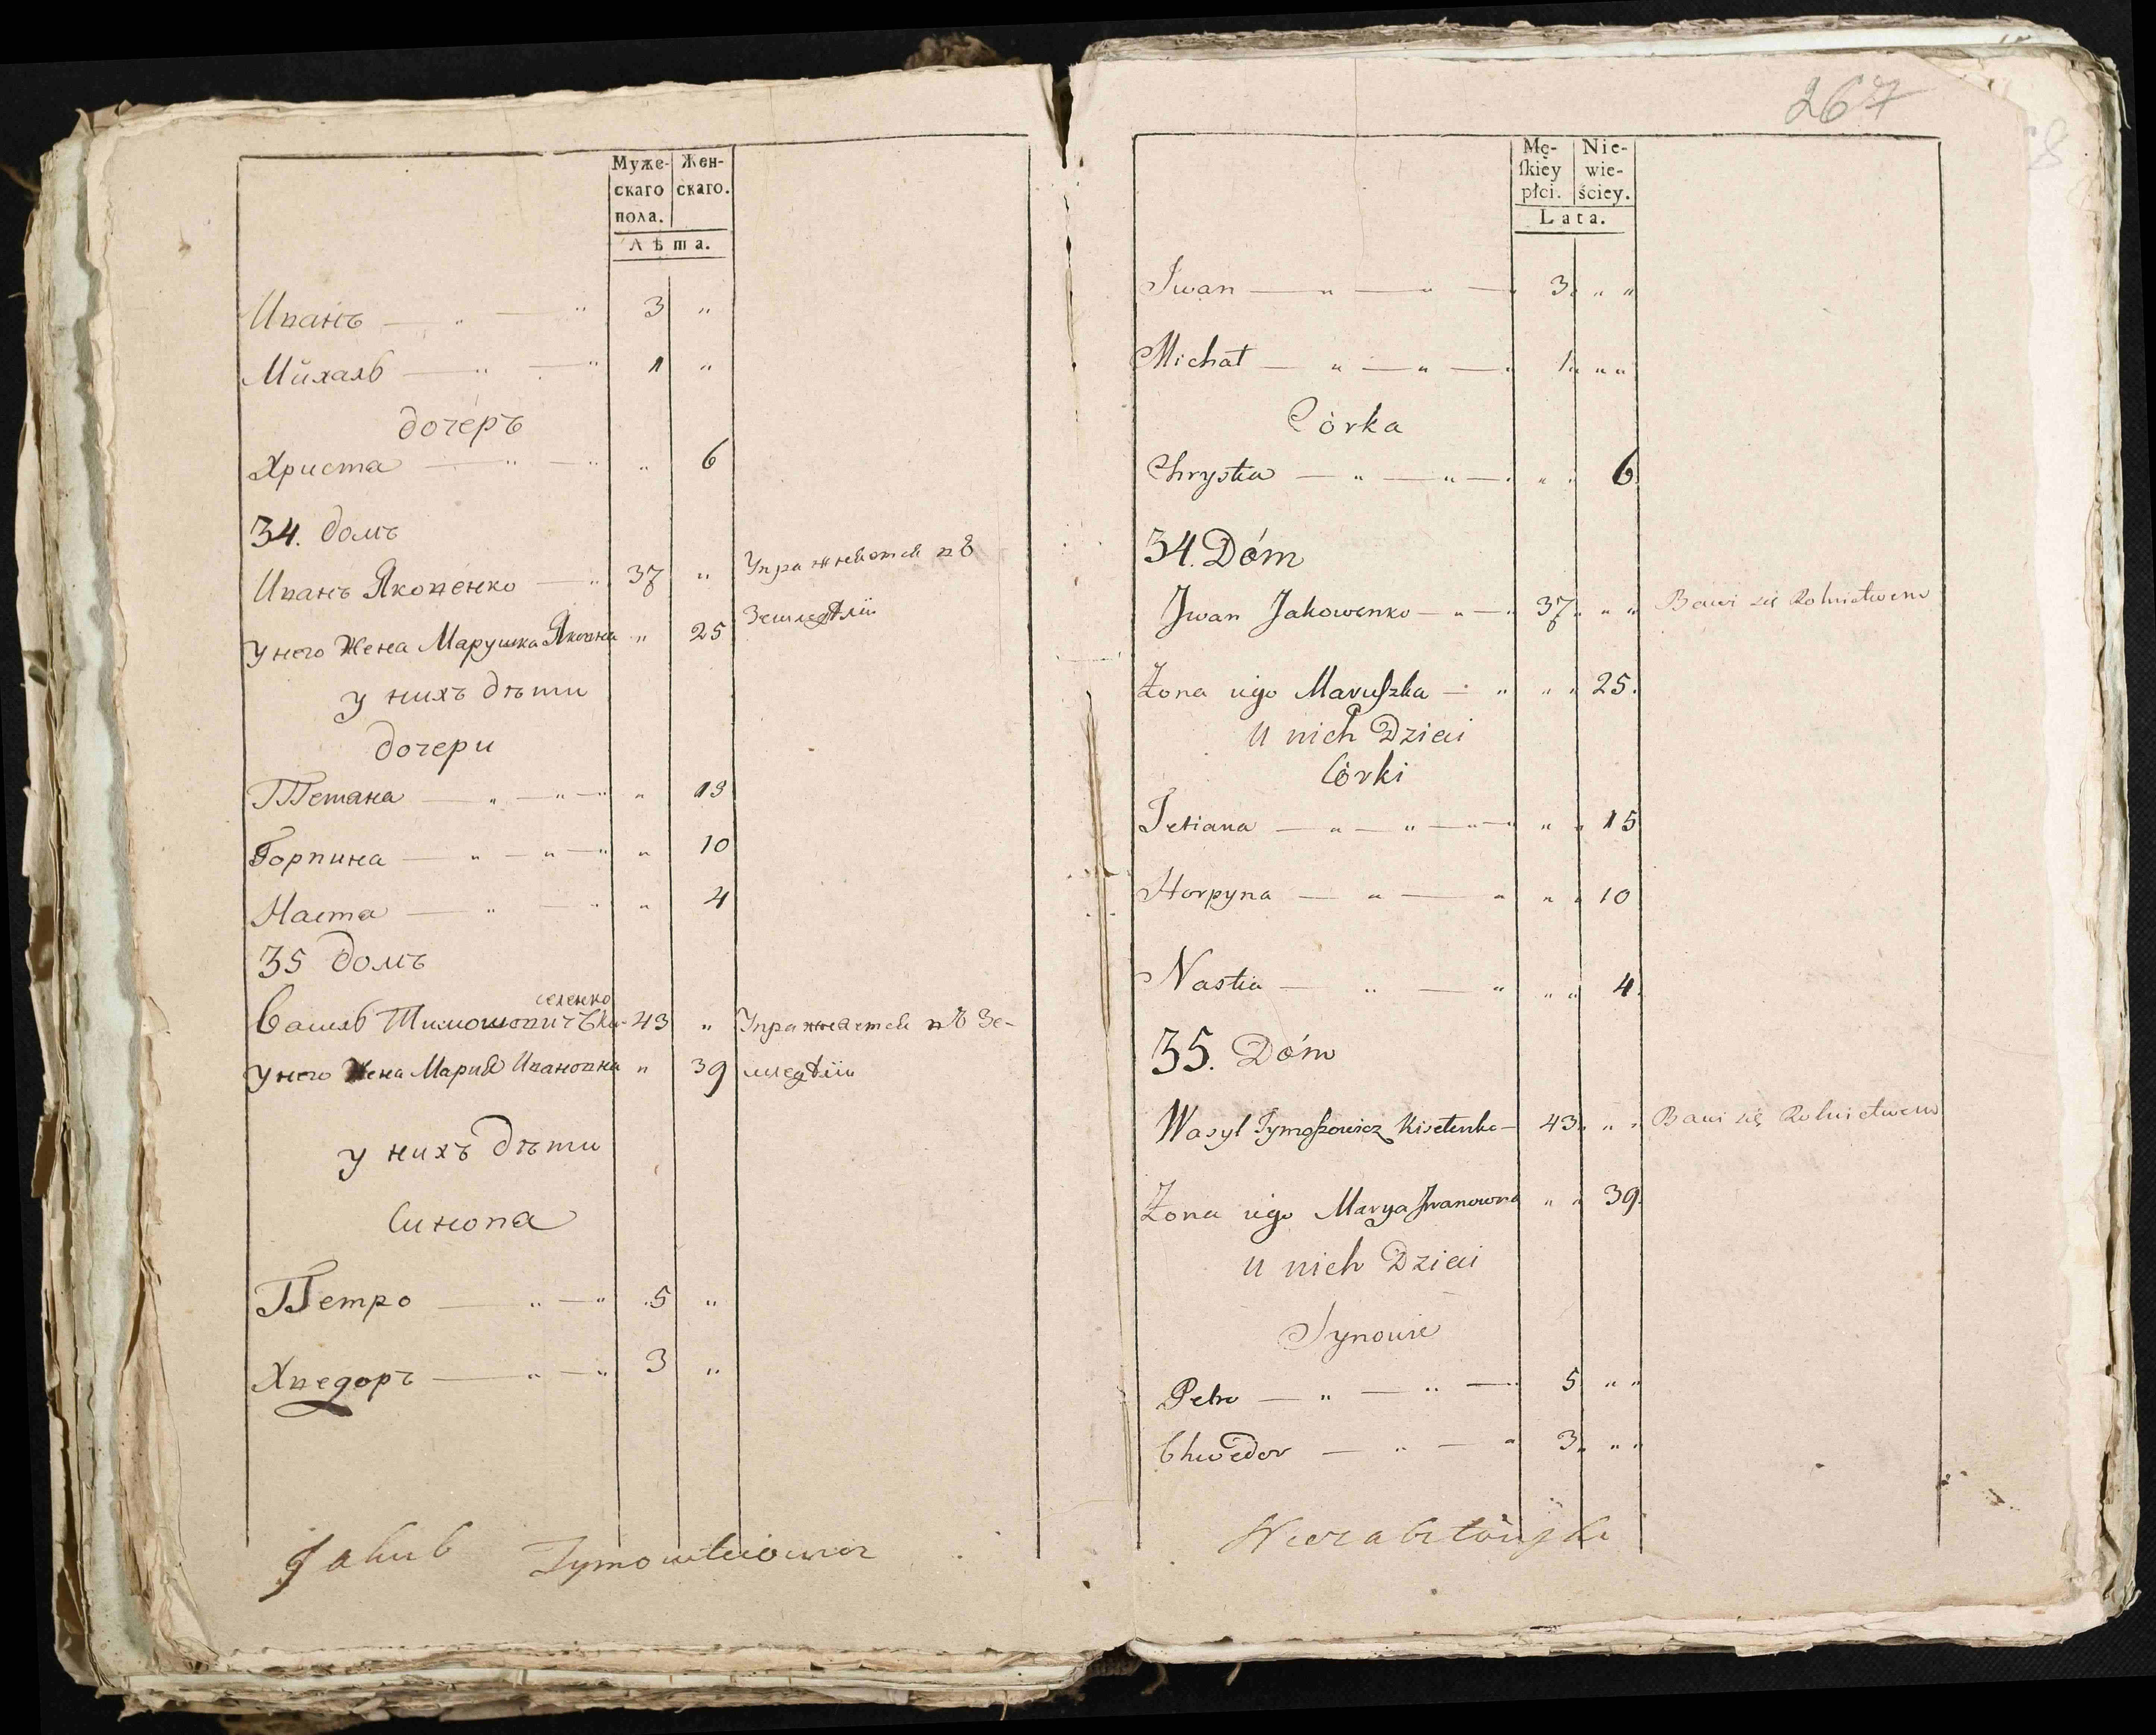 Муже- Жен-
скаго скаго.
пола.
Лѣта.
Иванъ — " — " 3 "
Михаль — " — " 1 "
дочеръ
Христа — " — " " 6
34. домъ
Иванъ Яковенко — " 37 " Упражняется въ
у него Жена Марушка " 25 Земледѣліи
у нихъ дѣти
дочери
Тетана — " — " — " "
Горпина — " — " — " " 10
Наста — " — " " 4
35 домъ
селенко
Василь Тимошовичъ Ки- 43 " Упражняется въ Зе-
у него Жена Мария Ивановна " 39 мледѣліи
у нихъ дѣти
Синова
Петро — " — " 5 "
Хведоръ — " — " 3 "
Jakub
267
Mę- Nie-
ſkiey wie-
płci. ściey.
Lata.
Iwan — " — " — " 3 " "
Michał — " — " — " 1 " "
Córka
Chrystia — " — " — " " " 6
34. Dóm
Iwan Jakowenko — " — " 37 " " Bawi się Rolnictwem
Żona iego Maruſzka — " " " " 25.
U nich Dzieci
Córki
Tetiana — " — " — " — " " " 15
Horpyna — " — " " " 10
Nastia — " — " " " 4.
35. Dóm
Wasyl Tymoſzowicz Kisełenko — 43 " " Bawi się Rolnictwem
Żona iego Marya Iwanowna " " 39.
U nich Dzieci
Synowie
Petro — " — " — " 5 " "
Chwedor — " — " 3 " "